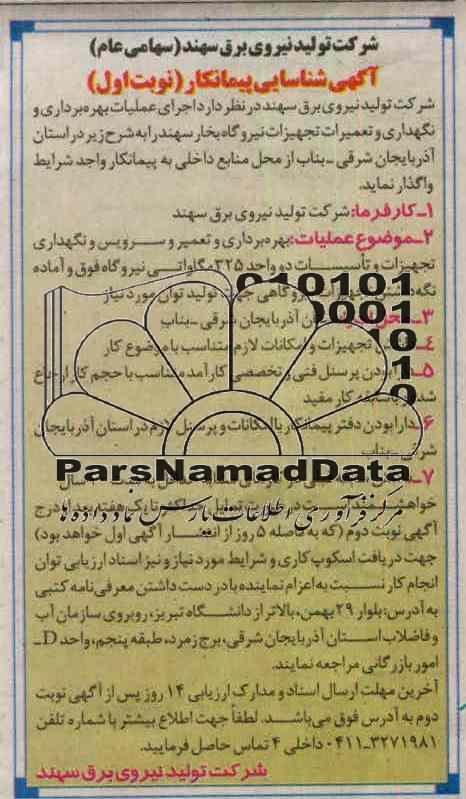 شرکت تولید نیروی برق سهند (سهامی عام)
آگهی شناسایی پیمانکار (نوبت اول)
شرکت تولید نیروی برق سهند در نظر دارد اجرای عملیات بهره‌برداری و
نگهداری و تعمیرات تجهیزات نیروگاه بخار سهند را به شرح زیر در استان
آذربایجان شرقی ـ بناب از محل منابع داخلی به پیمانکار واجد شرایط
واگذار نماید.
۱ـ کارفرما: شرکت تولید نیروی برق سهند
۲ـ موضوع عملیات: بهره‌برداری و تعمیر و سرویس و نگهداری
تجهیزات و تأسیسات دو واحد ۳۲۵ مگاواتی نیروگاه فوق و آماده
تولید توان مورد نیاز
۳ـ آذربایجان شرقی ـ بناب
۴ـ تجهیزات و امکانات لازم متناسب با موضوع کار
۵ـ بودن پرسنل فنی و تخصصی کارآمد متناسب با حجم کار
کار مفید
۶ـ دارا بودن دفتر پیمانکار با امکانات و پرسنل لازم در استان آذربایجان
شرقی ـ بناب
۷ـ
010101
0001
10
1
0
ParsNamadData
مرکز فرآوری اطلاعات پارس نماد داده‌ها
آگهی نوبت دوم (که به فاصله ۵ روز از انتشار آگهی اول خواهد بود)
جهت دریافت اسکوپ کاری و شرایط مورد نیاز و نیز اسناد ارزیابی توان
انجام کار نسبت به اعزام نماینده با در دست داشتن معرفی‌نامه کتبی
به آدرس: بلوار ۲۹ بهمن، بالاتر از دانشگاه تبریز، روبروی سازمان آب
و فاضلاب استان آذربایجان شرقی، برج زمرد، طبقه پنجم، واحد D ـ
امور بازرگانی مراجعه نمایند.
آخرین مهلت ارسال اسناد و مدارک ارزیابی ۱۴ روز پس از آگهی نوبت
دوم به آدرس فوق می‌باشد. لطفاً جهت اطلاع بیشتر با شماره تلفن
۰۴۱۱-۳۲۷۱۹۸۱ داخلی ۴ تماس حاصل فرمایید.
شرکت تولید نیروی برق سهند